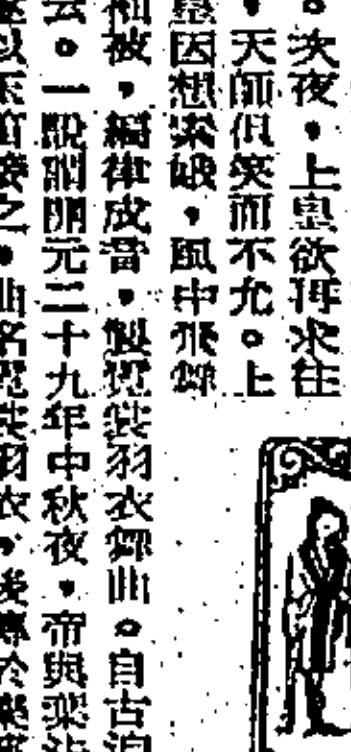 。次夜，上皇欲再求往
，天師但笑而不允。上
皇因想素娥，風中飛舞
袖被，編律成音，製霓裳羽衣舞曲。自古洎
云。一說開元二十九年中秋夜，帝與葉法
遂以玉笛接之，曲名霓裳羽衣，後傳於樂